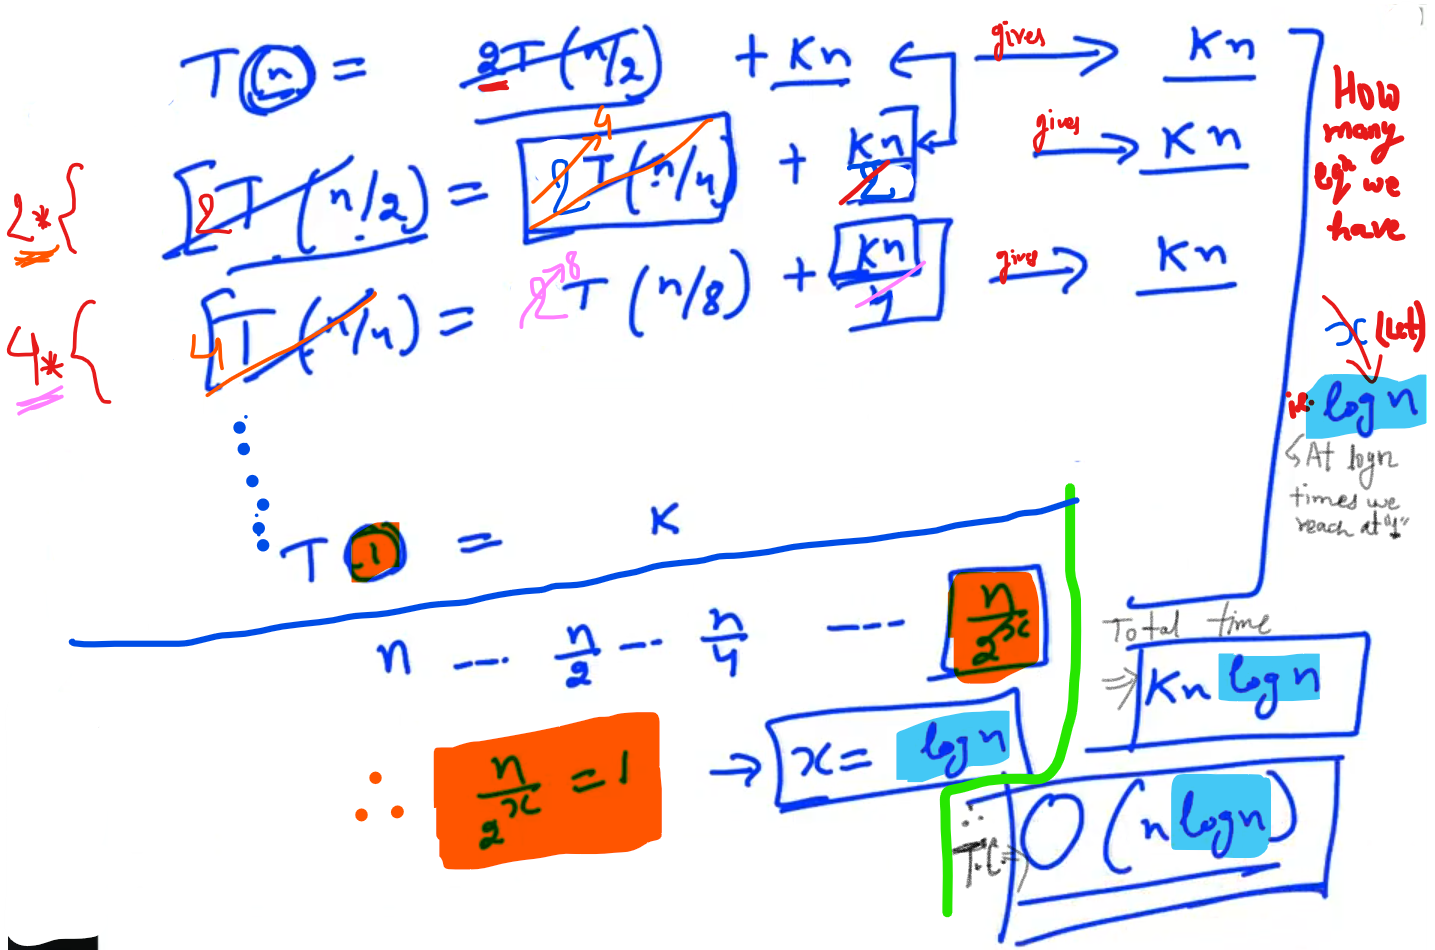 T(n) = 2T(n/2) + Kn gives → Kn
2* { 2T(n/2) = 2 4 T(n/4) + Kn/2 gives → Kn
4* { 4T(n/4) = 2 8 T(n/8) + Kn/4 gives → Kn
T(1) = K
How
many
eqⁿ we
have
x (Let)
i.e. log n
↳ At logn
times we
reach at "1"
n ---- n/2 --- n/4 ---- n/2^x
∴ n/2^x = 1 → x = log n
Total time
⇒ Kn log n
∴
T.C. ⇒ O(n logn)